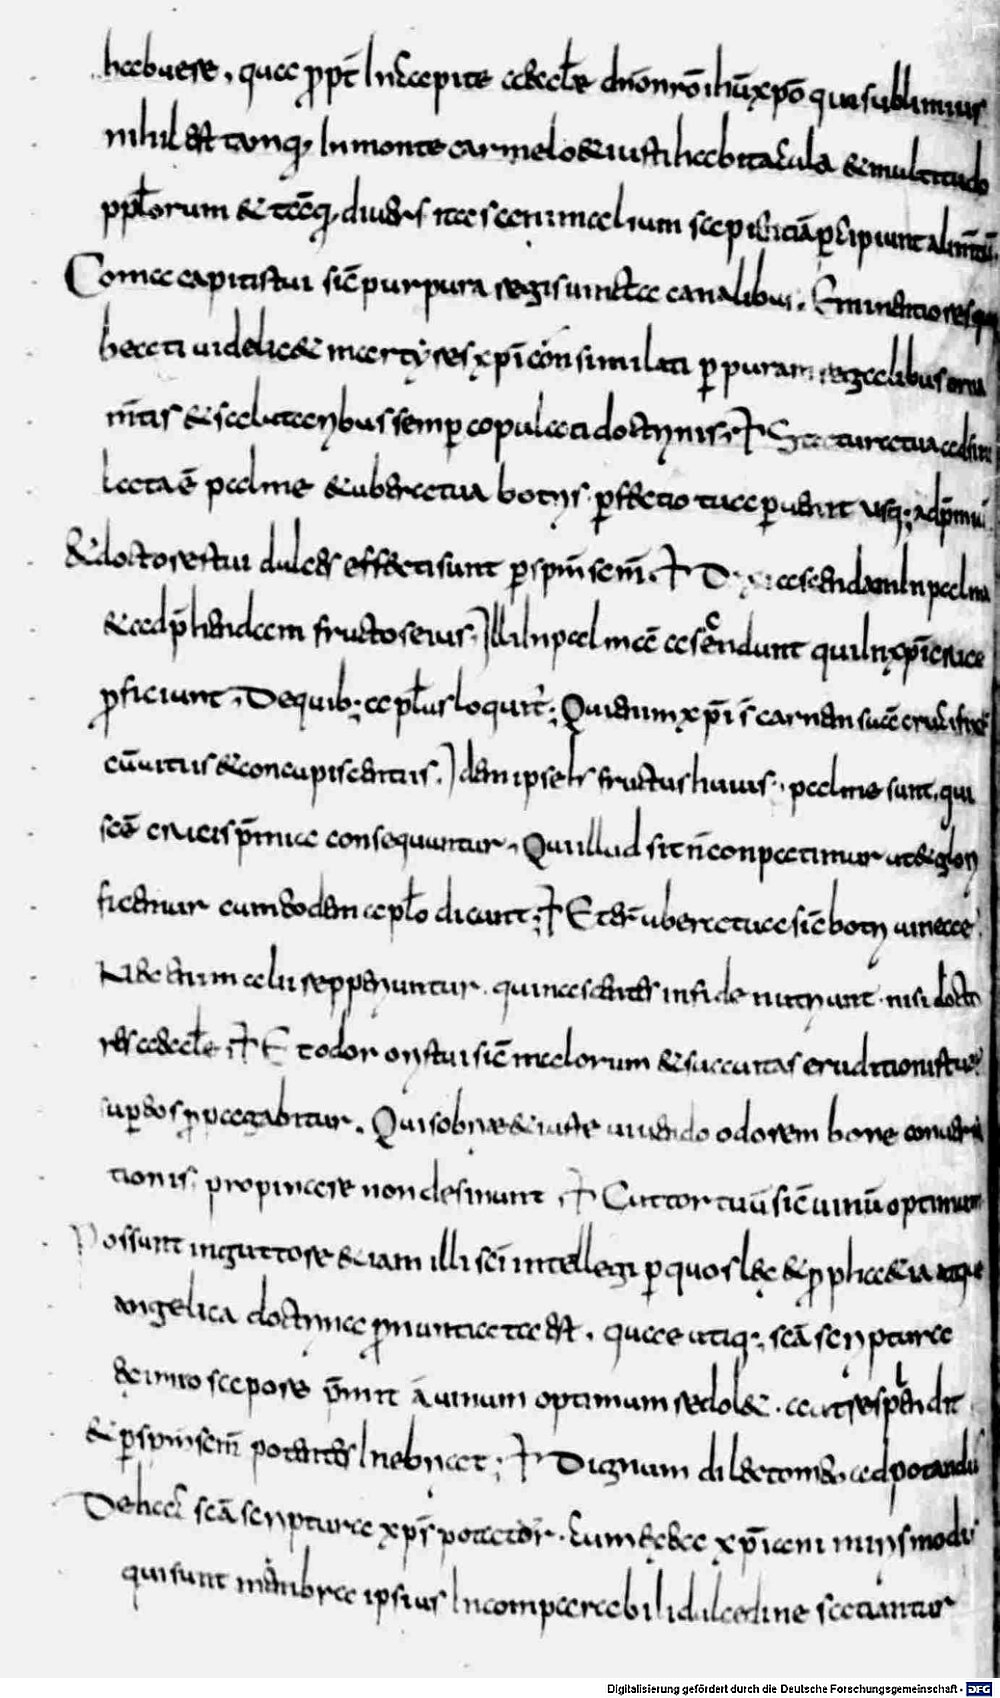 habuere, quae ꝓpt̄ In capite aecclę dn̄i nr̄i ihū xp̄o qua sublimius
nihil est tamq; In monte carmelo & iusti habitacula & multitudo
pp̄lorum & tāq; diuersitas animalium sapientiā ꝑcipiunt alim̄tū
Comae capitis tui sic̄ purpura regis uincta canalibus. Eminentiores qui
beati uidelic& martyres xp̄i consimilati purpuram regalibus orna
m̄tis & salutaribus semꝑ copulati doctrinis, ✝ Statura tua adsimi
lata ē palme & ubera tua botris. ꝑfectio tua ꝑuenit usq; ad p̄miū
& doctores tui dulces effecti sunt ꝑ sp̄m sc̄m. ✝ Dixi ascendam In palma
& adp̄hendam fructos eius, Illi In palmā ascendunt qui In xp̄i cruce
ꝓficiunt, De quib; apl̄us loquit̄; Qui enim xp̄i s̄ carnem suā crucifix̄
cū uitiis & concupiscentiis, Idem ipse est fructus huius palme sunt, qui
scē crucis p̄mia consequuntur, Qui illud sit n̄ conpatimur ut & glori
ficemur cum eodem apl̄o dicunt; ✝ Et er̄ ubera tua sic̄ botri uineae
Nec enim alii repperiuntur. qui nascentes in fide nutriunt. nisi docto
res aecclę; ✝ Et odor oris tui sic̄ malorum & suauitas eruditionis tuae
suꝑ eos ꝓpagabitur. Qui sobriae & iuste uiuendo odorem bone conuersa
tionis propinare non desinunt ✝ Guttor tuū sic̄ uinū optimum
Possunt in guttore &iam illi sc̄i intellegi ꝑ quos lex & ꝓph&ia atque
angelica doctrina ꝓnuntiata est. quae utiq; sc̄ā scriptura
uinum optimum redol& ac resplendit
& ꝑ sp̄m sc̄m potentes Inebriat; ✝ Dignum dilecto meo ad potandū
De hac sc̄ā scriptura xp̄s potator
qui sunt membra ipsius Incomparabili dulcedine satiantur
Digitalisierung gefördert durch die Deutsche Forschungsgemeinschaft - DFG